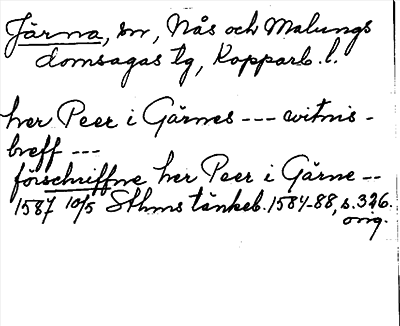 Järna, sn, Nås och Malungs
domsagas tg, Kopparb. l.
her Peer i Gärnes --- witnis-
breff ---
förschriffne her Peer i Gärne --
1587 10/5 Sthms tänkeb. 1584-88, s. 326.
orig.